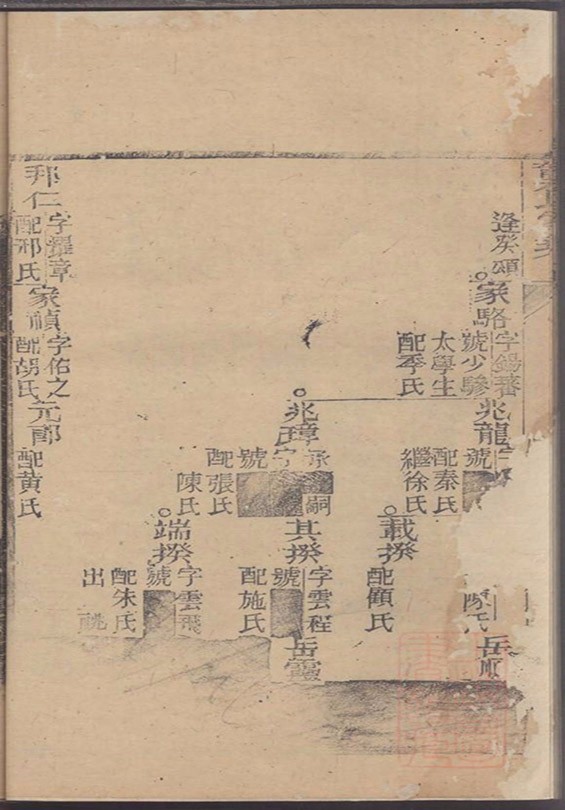 逢癸頌
家駱
字錫蕃
號少驂
太學生
配季氏
兆龍
號
配秦氏
繼徐氏
陳氏
岳
載揆
配顧氏
兆璋
嗣
號
配張氏
陳氏
其揆
字雲程
號
配施氏
岳靈
端揆
字雲飛
號
配朱氏
出祧
邦仁
字耀章
配邢氏
家禎
字佑之
配胡氏
元郎
配黃氏